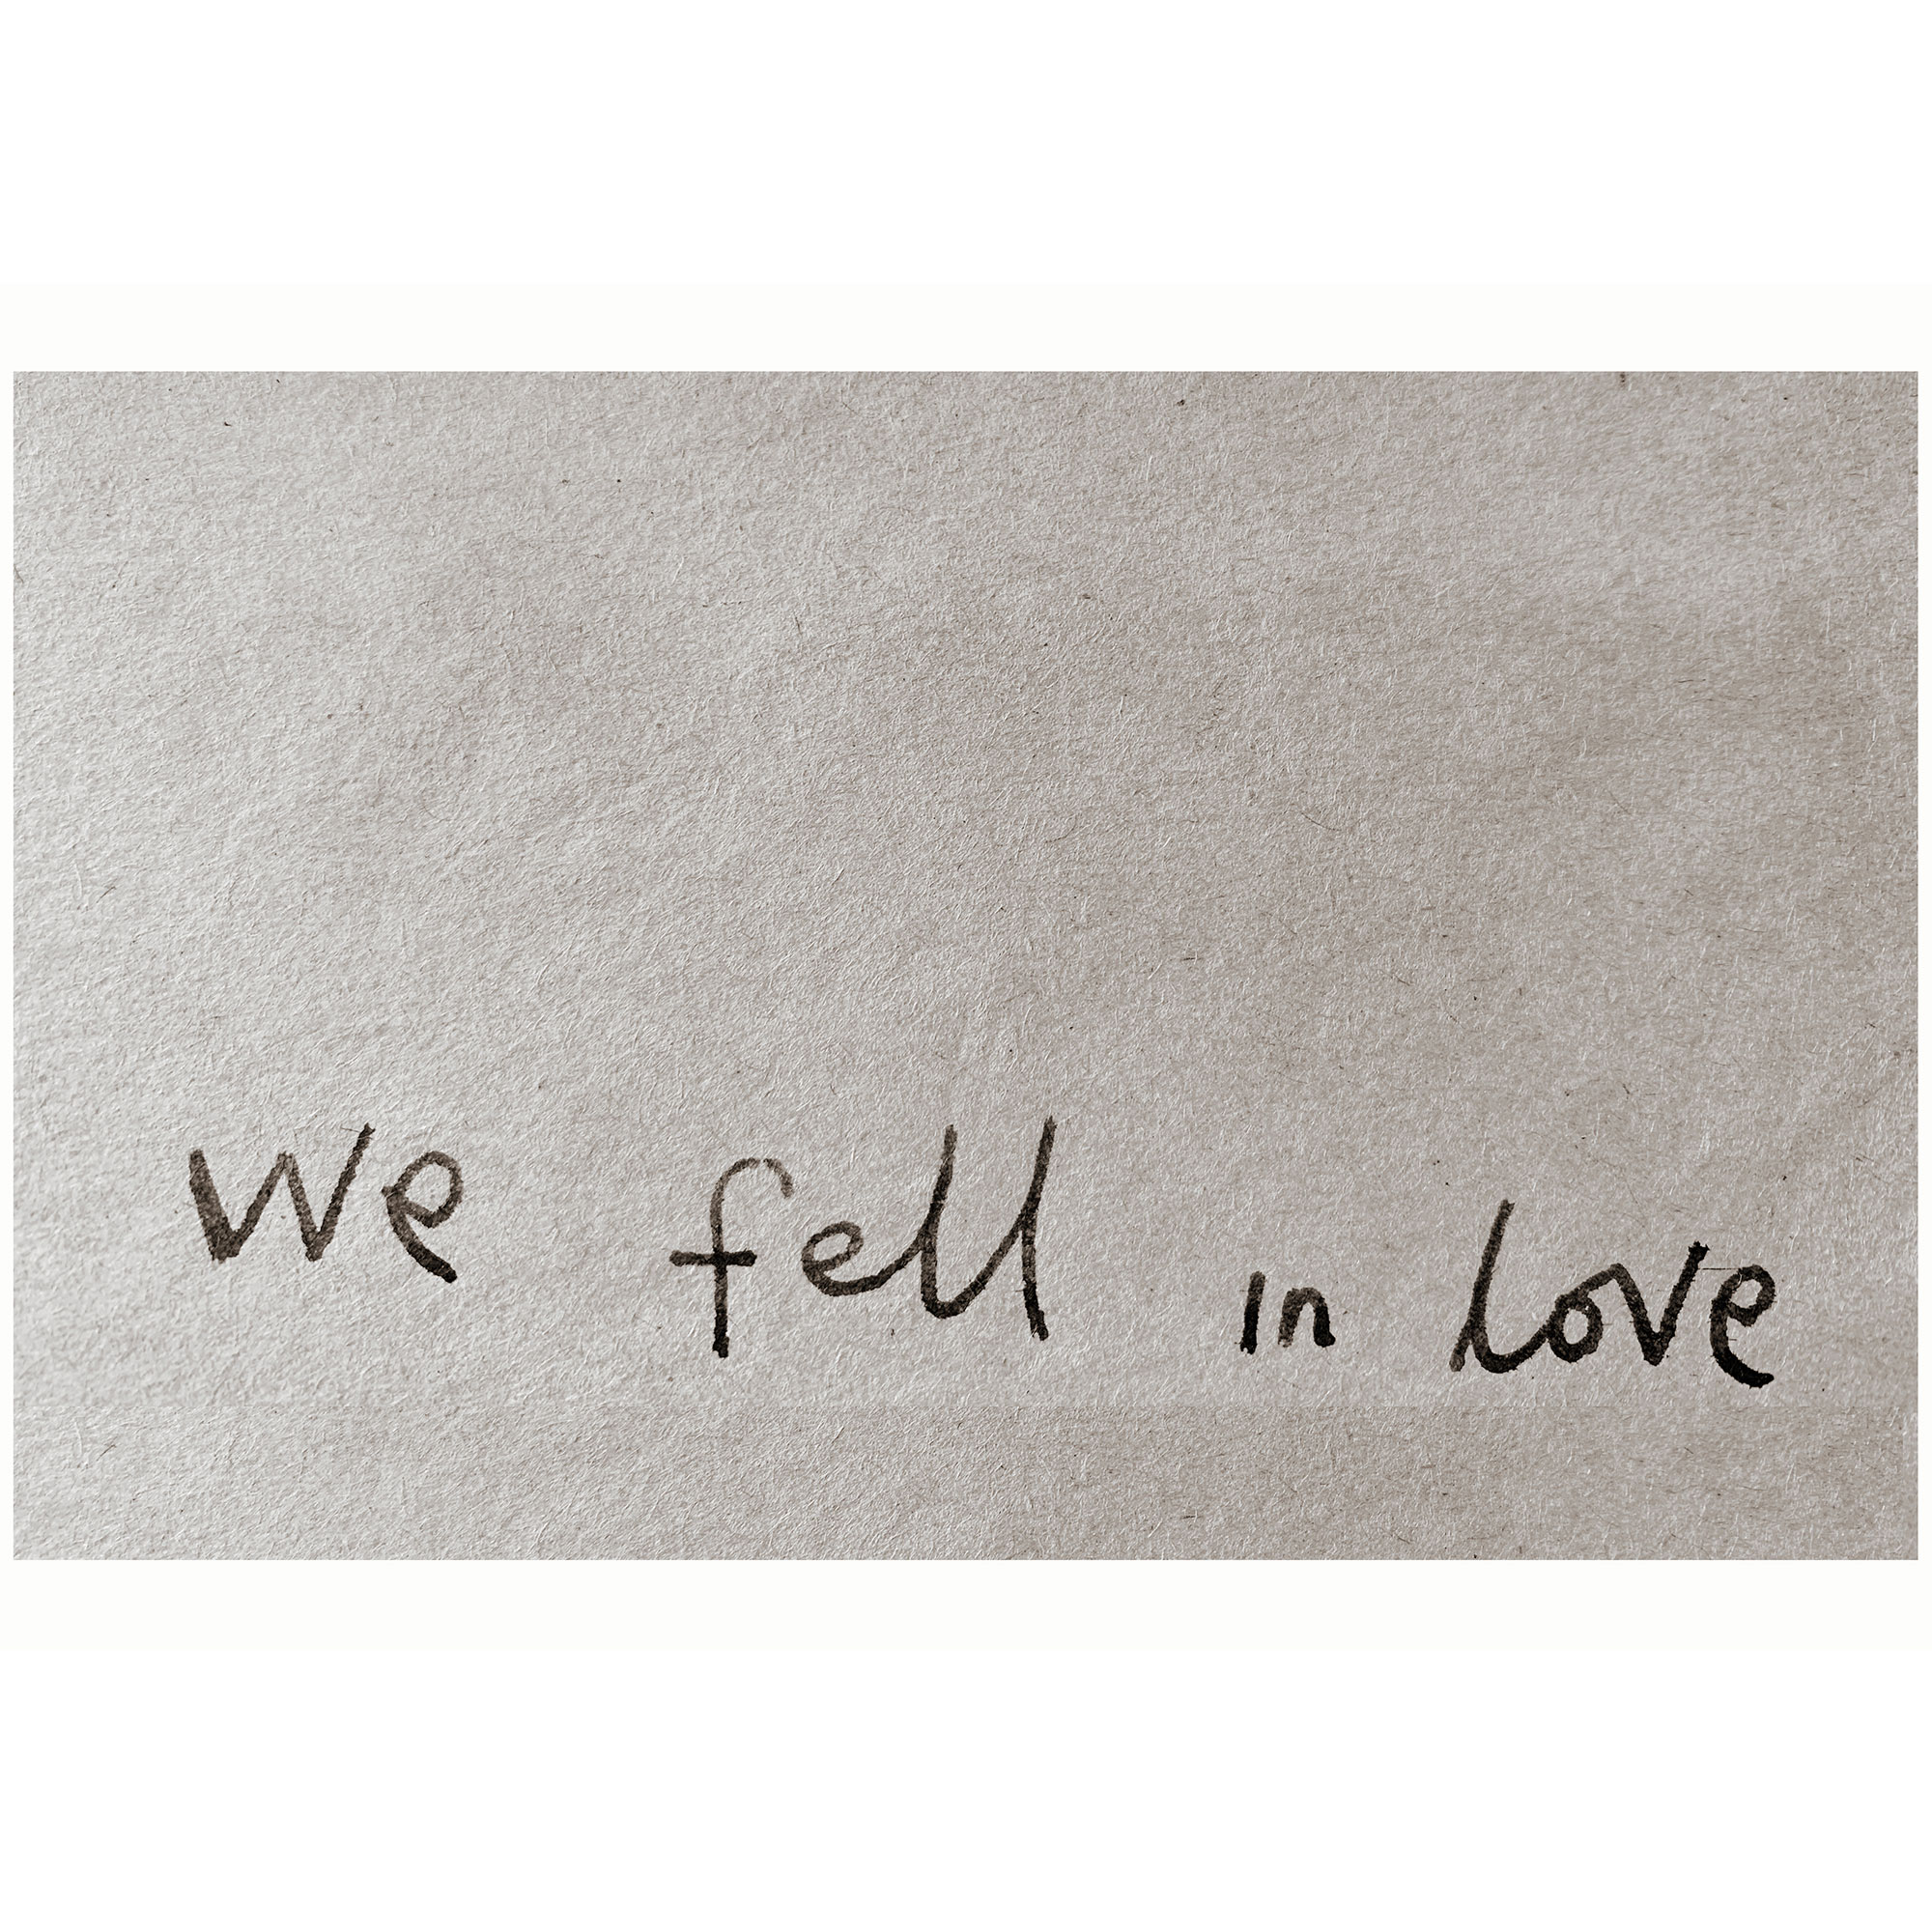 we fell in love